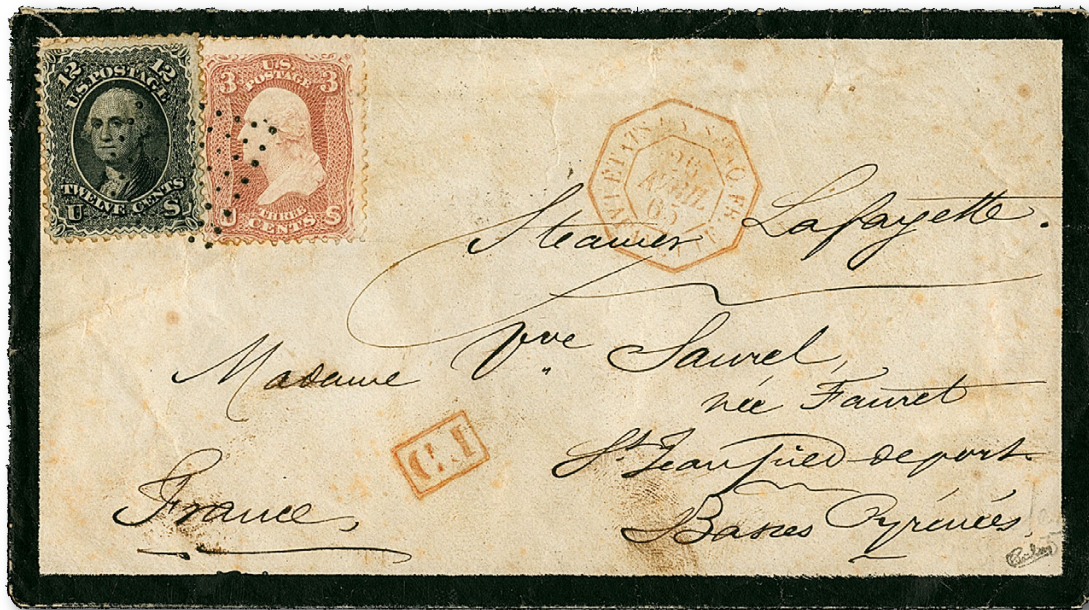 12 12
U.S. POSTAGE
TWELVE CENTS
U S
3 U.S. 3
POSTAGE
THREE
U CENTS S
AVRIL
65
Steamer Lafayette.
Madame Vve Saurel,
née Fauret
St Jean pied de port
Basses Pyrénées,
France,